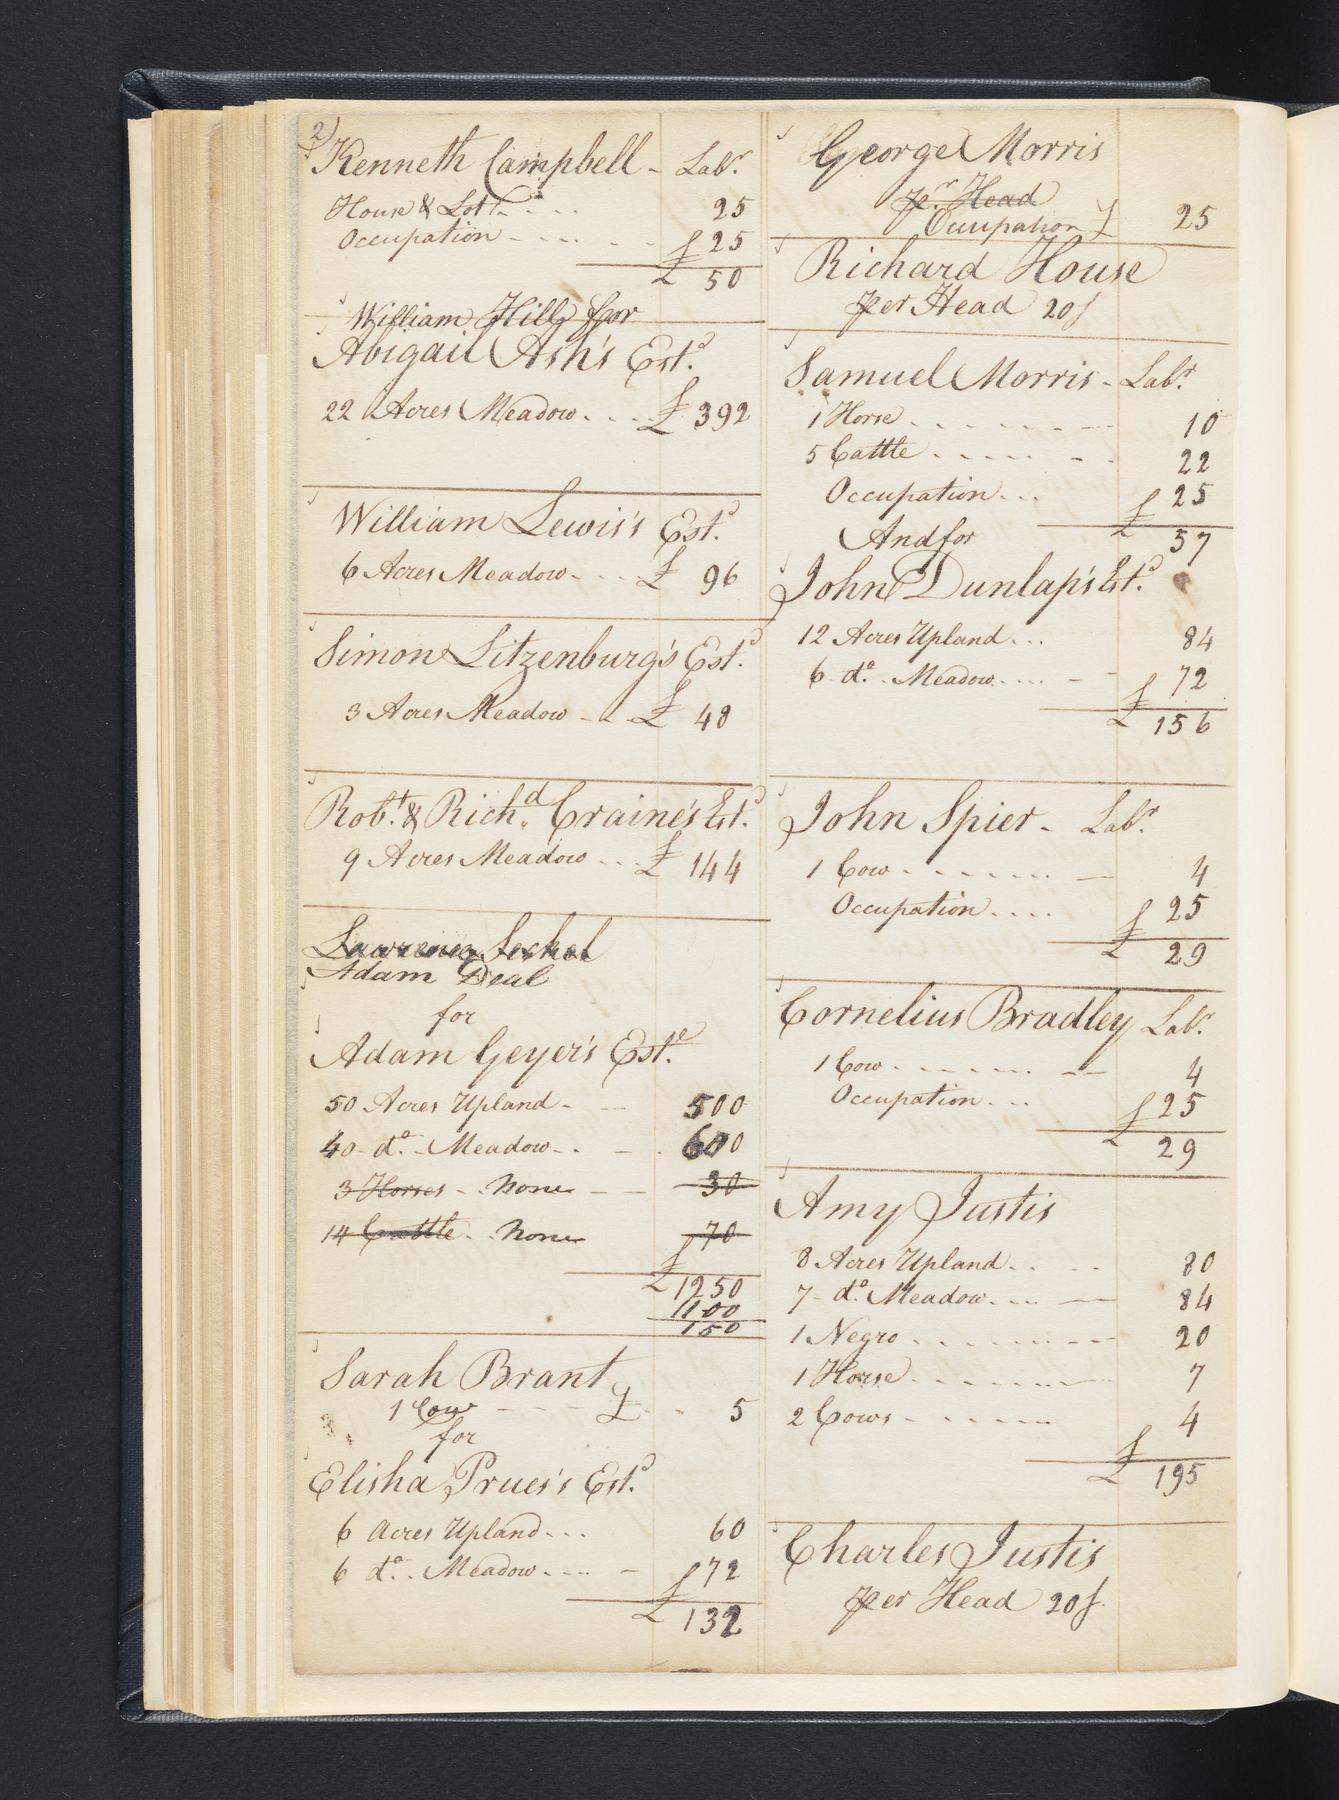 2)
Kenneth Campbell - Labr.
House & Lot - - - - 25
Occupation - - - - - £ 25
£ 50
William Hill for
Abigail Ash's Estd.
22 Acres Meadow - - - £ 392
William Lewis's Estd.
6 Acres Meadow - - - £ 96
Simon Litzenburg's Estd.
3 Acres Meadow - - £ 48
Robt. & Richd. Craine's Estd.
9 Acres Meadow - - - £ 144
Lawrence Seckel
Adam Deal
for
Adam Geyer's Este.
50 Acres Upland - - 500
40 - do. - Meadow - - - 600
3 Horses - - None - - 30
14 Cattle - - None 70
£ 1250
1100
150
Sarah Brant
1 Cow - - - £ - - 5
for
Elisha Prues's Estd.
6 Acres Upland - - - 60
6 do. - Meadow - - - - £ 72
£ 132
George Morris
pr. Head
Occupation } 25
Richard House
per Head 20s
Samuel Morris - Labr.
1 Horse - - - - - - - 10
5 Cattle - - - - - - 22
Occupation - - - £ 25
And for £ 57
John Dunlap's Estd.
12 Acres Upland - - - 84
6 do. - Meadow - - - - - £ 72
£ 156
John Spier - Labr.
1 Cow - - - - - - - 4
Occupation - - - - £ 25
£ 29
Cornelius Bradley Labr.
1 Cow - - - - - - - 4
Occupation - - - £ 25
£ 29
Amy Justis
8 Acres Upland - - - 80
7 - do. Meadow - - - - 84
1 Negro - - - - - - - 20
1 Horse - - - - - - - 7
2 Cows - - - - - - £ 4
£ 195
Charles Justis
per Head 20s.